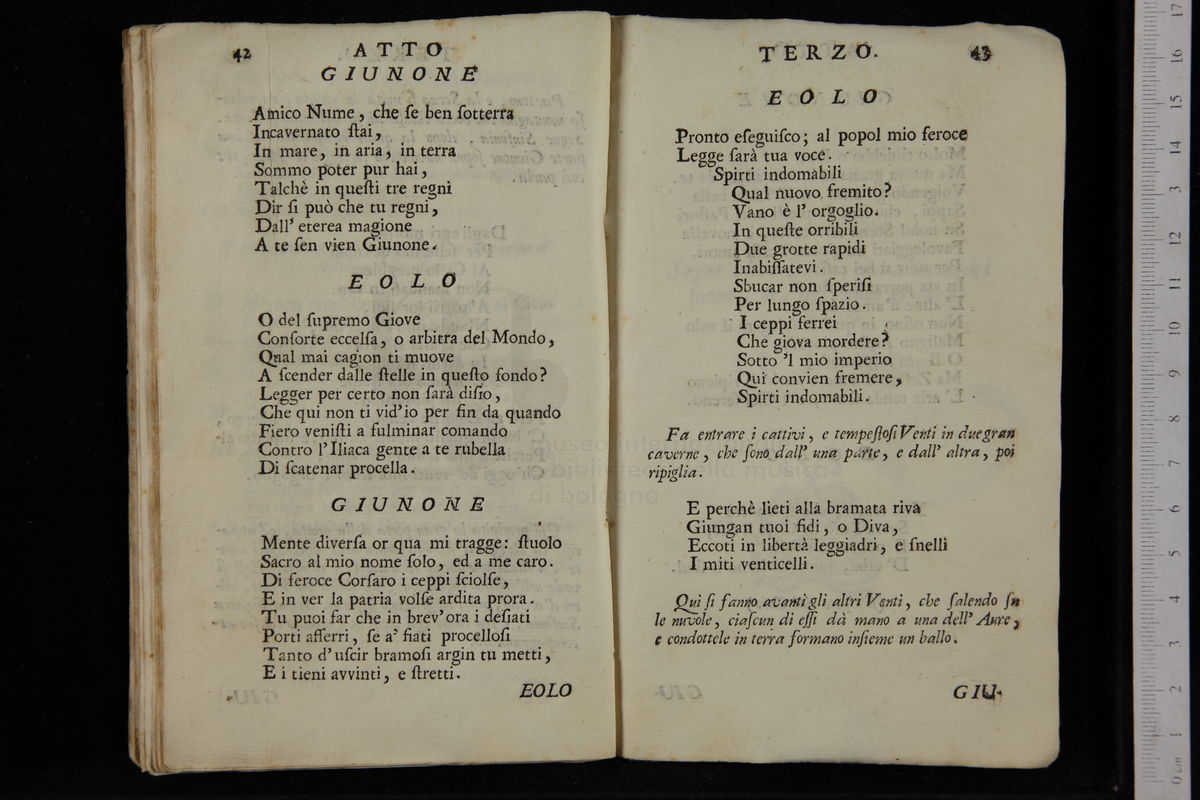 42 ATTO
GIUNONE
Amico Nume, che ſe ben ſotterra
Incavernato ſtai,
In mare, in aria, in terra
Sommo poter pur hai,
Talchè in queſti tre regni
Dir ſi può che tu regni,
Dall' eterea magione
A te ſen vien Giunone.
EOLO
O del ſupremo Giove
Conſorte eccelſa, o arbitra del Mondo,
Qual mai cagion ti muove
A ſcender dalle ſtelle in queſto fondo?
Legger per certo non ſarà diſio,
Che qui non ti vid'io per fin da quando
Fiero veniſti a fulminar comando
Contro l'Iliaca gente a te rubella
Di ſcatenar procella.
GIUNONE
Mente diverſa or qua mi tragge: ſtuolo
Sacro al mio nome ſolo, ed a me caro.
Di feroce Corſaro i ceppi ſciolſe,
E in ver la patria volſe ardita prora.
Tu puoi far che in brev'ora i deſiati
Porti afferri, ſe a' fiati procelloſi
Tanto d'uſcir bramoſi argin tu metti,
E i tieni avvinti, e ſtretti.
EOLO
TERZO. 43
EOLO
Pronto eſeguiſco; al popol mio feroce
Legge ſarà tua voce.
Spirti indomabili
Qual nuovo fremito?
Vano è l' orgoglio.
In queſte orribili
Due grotte rapidi
Inabiſſatevi.
Sbucar non ſperiſi
Per lungo ſpazio.
I ceppi ferrei
Che giova mordere?
Sotto 'l mio imperio
Qui convien fremere,
Spirti indomabili.
Fa entrare i cattivi, e tempeſtoſi Venti in due gran
caverne, che ſono dall' una parte, e dall' altra, poi
ripiglia.
E perchè lieti alla bramata riva
Giungan tuoi fidi, o Diva,
Eccoti in libertà leggiadri, e ſnelli
I miti venticelli.
Qui ſi fanno avanti gli altri Venti, che ſalendo ſu
le nuvole, ciaſcun di eſſi dà mano a una dell' Aure,
e condottele in terra formano inſieme un ballo.
GIU-